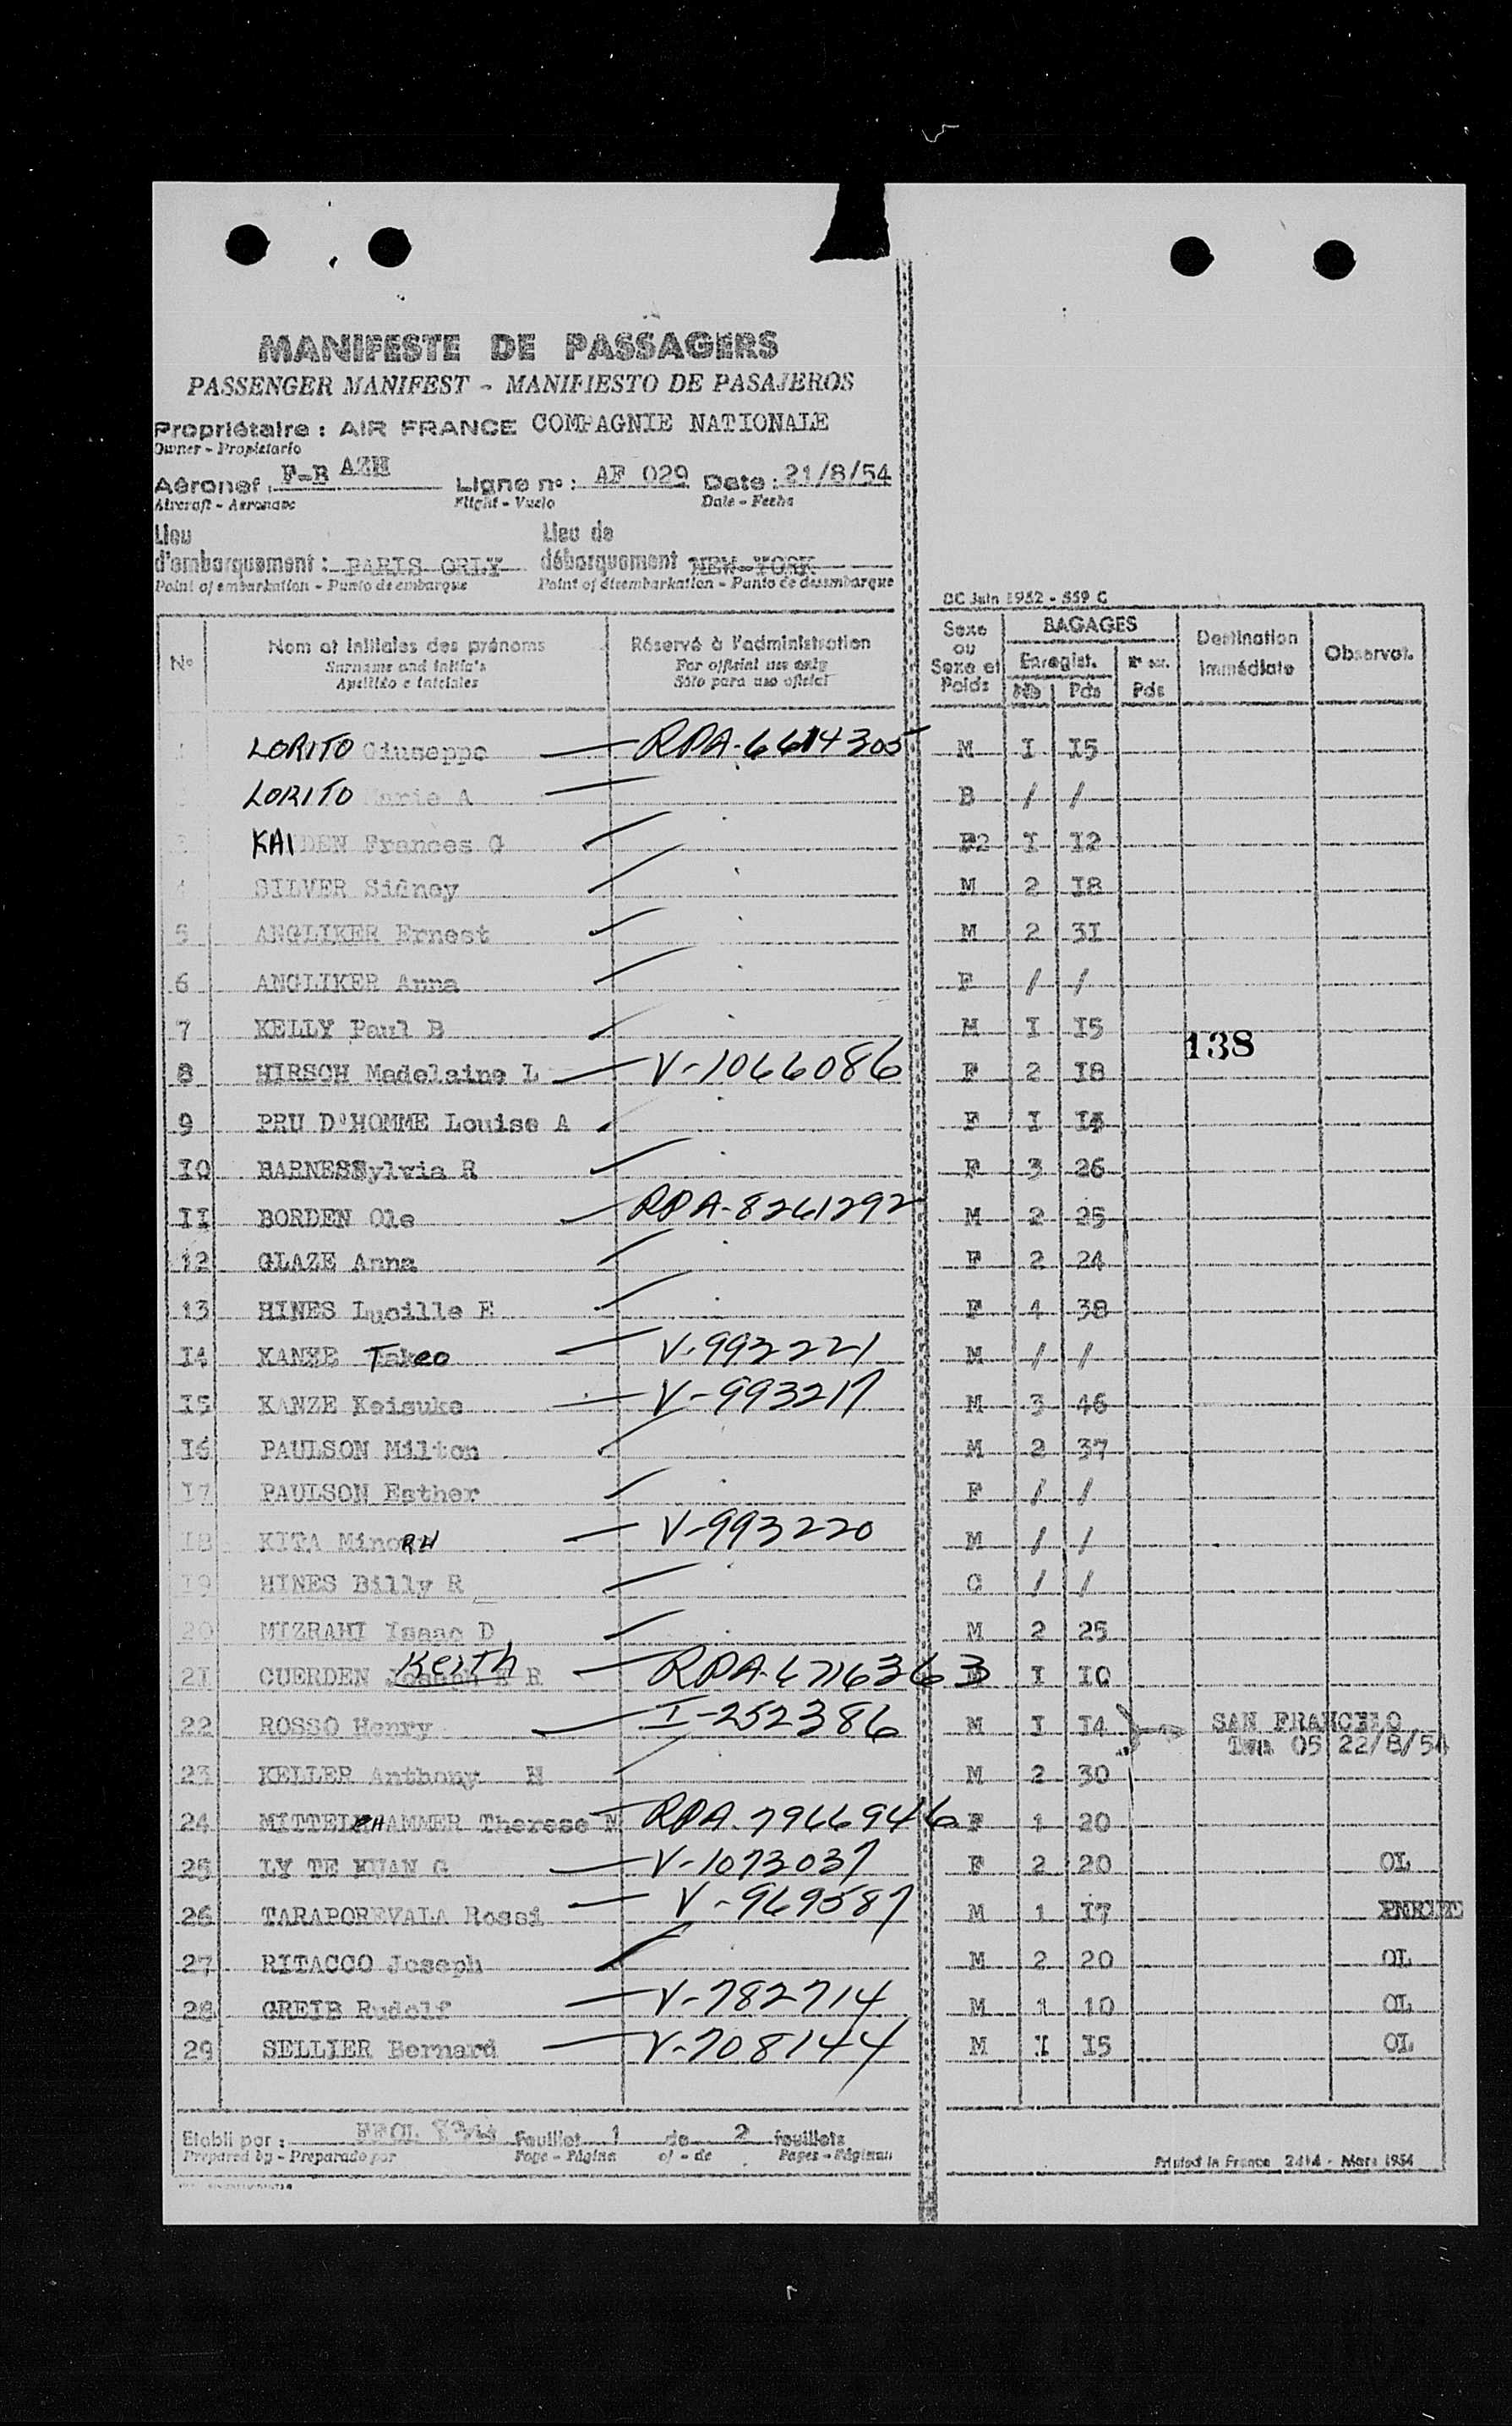 MANIFESTE DE PASSAGERS
PASSENGER MANIFEST - MANIFIESTO DE PASAJEROS
Propriétaire : AIR FRANCE COMPAGNIE NATIONALE
Owner - Propietario
Aéronef : F-B AZH Ligne no : AF 029 Date : 21/8/54
Aircraft - Aeronave Flight - Vuelo Date - Fecha
Lieu d'embarquement : PARIS ORLY Lieu de débarquement NEW-YORK
Point of embarkation - Punto de embarque Point of disembarkation - Punto de desembarque
OC Juin 1952 - 559 C
No Nom et initiales des prénoms Réservé à l'administration Sexe ou Sexe et Poids BAGAGES Destination immédiate Observat.
Surname and initials For official use only Enregist.
Apellido e iniciales Sólo para uso oficial Nb Pds Pds
LORITO Giuseppe RPA-6614305 M I I5
LORITO Marie A B / /
KAIDEN Frances G F2 I I2
4 SILVER Sidney M 2 I8
5 ANGLIKER Ernest M 2 3I
6 ANGLIKER Anna F / /
7 KELLY Paul B M I I5
138
8 HIRSCH Madelaine L V-1066086 F 2 I8
9 PRU D'HOMME Louise A F I
I0 BARNESSylvia R F 3 26
II BORDEN Ole RPA-8261292 M 2 25
12 GLAZE Anna F 2 24
13 HINES Lucille E F 4 38
I4 Takeo V-993221 M / /
I5 KANZE Keisuke V-993217 M 3 46
I6 PAULSON Milton M 2 37
I7 PAULSON Esther F / /
I8 KITA V-993220 M / /
I9 HINES Billy R C / /
20 MIZRAHI Isaac D M 2 25
Keith
21 CUERDEN R RPA-6716363 I I0
22 ROSSO Henry I-252386 M I I4 SAN
05 22/8/54
23 KELLER Anthony H M 2 30
24 Therese M RPA-7966946 F 1 20
25 LY TE HUAN G V-1073037 F 2 20 OL
26 TARAPOREVALA Rossi V-969587 M 1 I7
27 RITACCO Joseph M 2 20 OL
28 GREIB Rudolf V-782714 M 1 10 OL
29 SELLIER Bernard V-708144 M I I5 OL
Etabli par : Feuillet 1 de 2 feuillets
Prepared by - Preparado por Page - Página of - de Pages - Páginas
Printed in France 2414 - Mars 1954